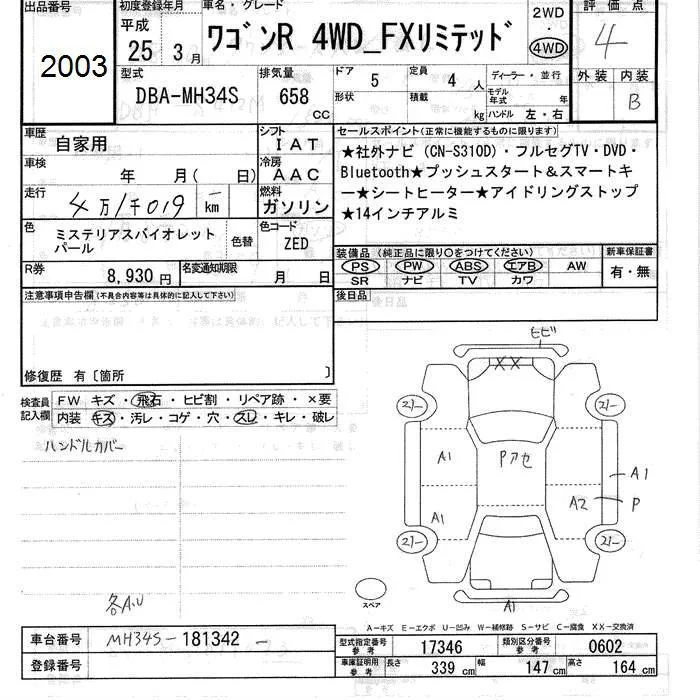 出品番号
2003
初度登録年月
平成
25 3月
車名・グレード
ワゴンR 4WD_FXリミテッド
2WD
・
4WD
評価点
4
型式
DBA-MH34S
排気量
658
CC
ドア
5
定員
4 人
形状
積載
kg
ディーラー・並行
モデル年式 年
ハンドル 左・右
外装 内装
B
車歴
自家用
シフト
IAT
車検
年 月( 日)
冷房
AAC
走行
4万/千019
km
燃料
ガソリン
色
ミステリアスバイオレット
パール
色替
色コード
ZED
R券
8,930円
名変通知期限
月 日
セールスポイント(正常に機能するものに限ります)
★社外ナビ (CN-S310D)・フルセグTV・DVD・
Bluetooth★プッシュスタート&スマートキ
ー★シートヒーター★アイドリングストップ
★14インチアルミ
装備品 (純正品に限り○をつけてください)
PS PW ABS エアB AW
SR ナビ TV カワ
新車保証書
有・無
注意事項申告欄(不具合内容等は具体的に記入して下さい)
後日品
修復歴 有〔箇所 〕
検査員
記入欄
FW キズ・飛石・ヒビ割・リペア跡・×要
内装 キズ・汚レ・コゲ・穴・スレ・キレ・破レ
ハンドルカバー
各A.U
ヒビ
XX
Pアセ
A1
A1
A1
A2
P
A1
スペア
A-キズ E-エクボ U-凹み W-補修跡 S-サビ C-腐食 XX-交換済
車台番号
MH34S-181342
登録番号
型式指定番号
参考
17346
類別区分番号
参考
0602
車庫証明用
参考
長さ
339 cm
幅
147 cm
高さ
164 cm